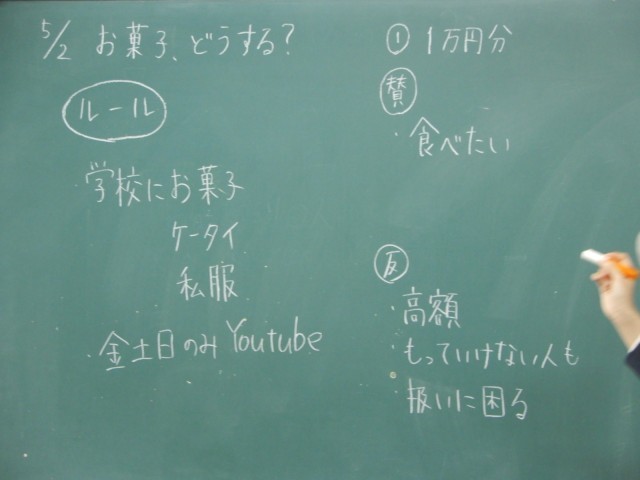 5/2 お菓子、どうする?
ルール
学校にお菓子
ケータイ
私服
・金土日のみYoutube
① 1万円分
賛
・食べたい
反
・高額
・もっていけない人も
・扱いに困る